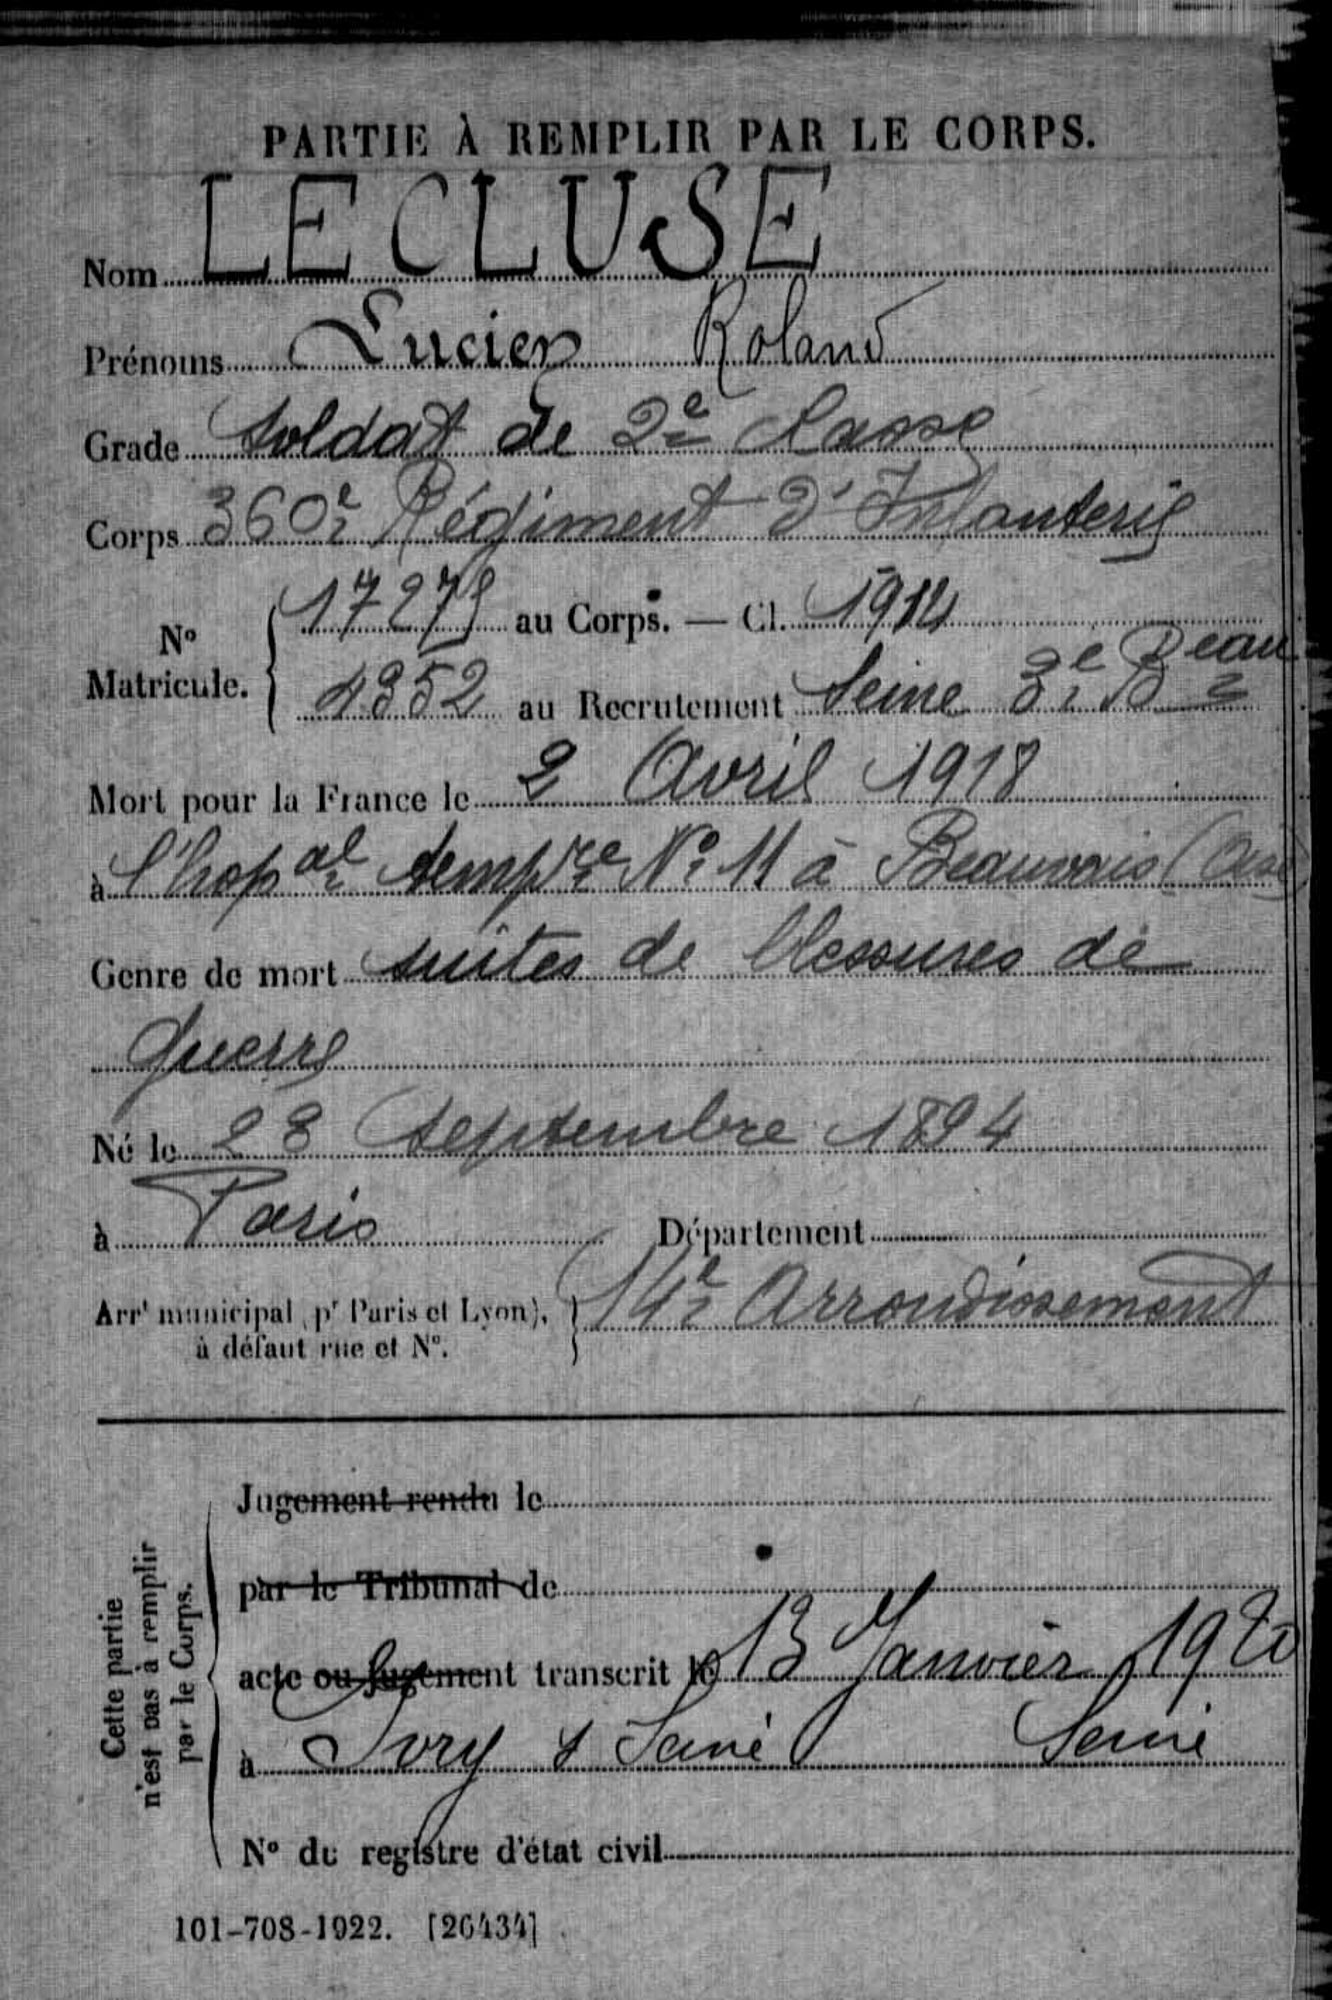 PARTIE À REMPLIR PAR LE CORPS.
Nom LECLUSE
Prénoms Lucien Roland
Grade Soldat de 2e classe
Corps 360e Régiment d'Infanterie
No Matricule. 17275 au Corps. — Cl. 1914
4352 au Recrutement Seine 3e Beau
Mort pour la France le 2 Avril 1918
à l'hopal tempre No 11 à Beauvais (Oise)
Genre de mort suites de blessures de
guerre
Né le 28 Septembre 1894
à Paris Département
Arrt municipal (pr Paris et Lyon), 14e Arrondissement
à défaut rue et No.
Cette partie
n'est pas à remplir
par le Corps.
Jugement rendu le
par le Tribunal de
acte ou jugement transcrit le 13 Janvier 1920
à Ivry s Seine Seine
No du registre d'état civil
101-708-1922. [26434]